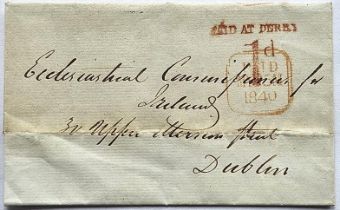 PAID AT DERRY
1d
PAID
1840
Ecclesiastical Commissioners for
Ireland
Upper Street
Dublin